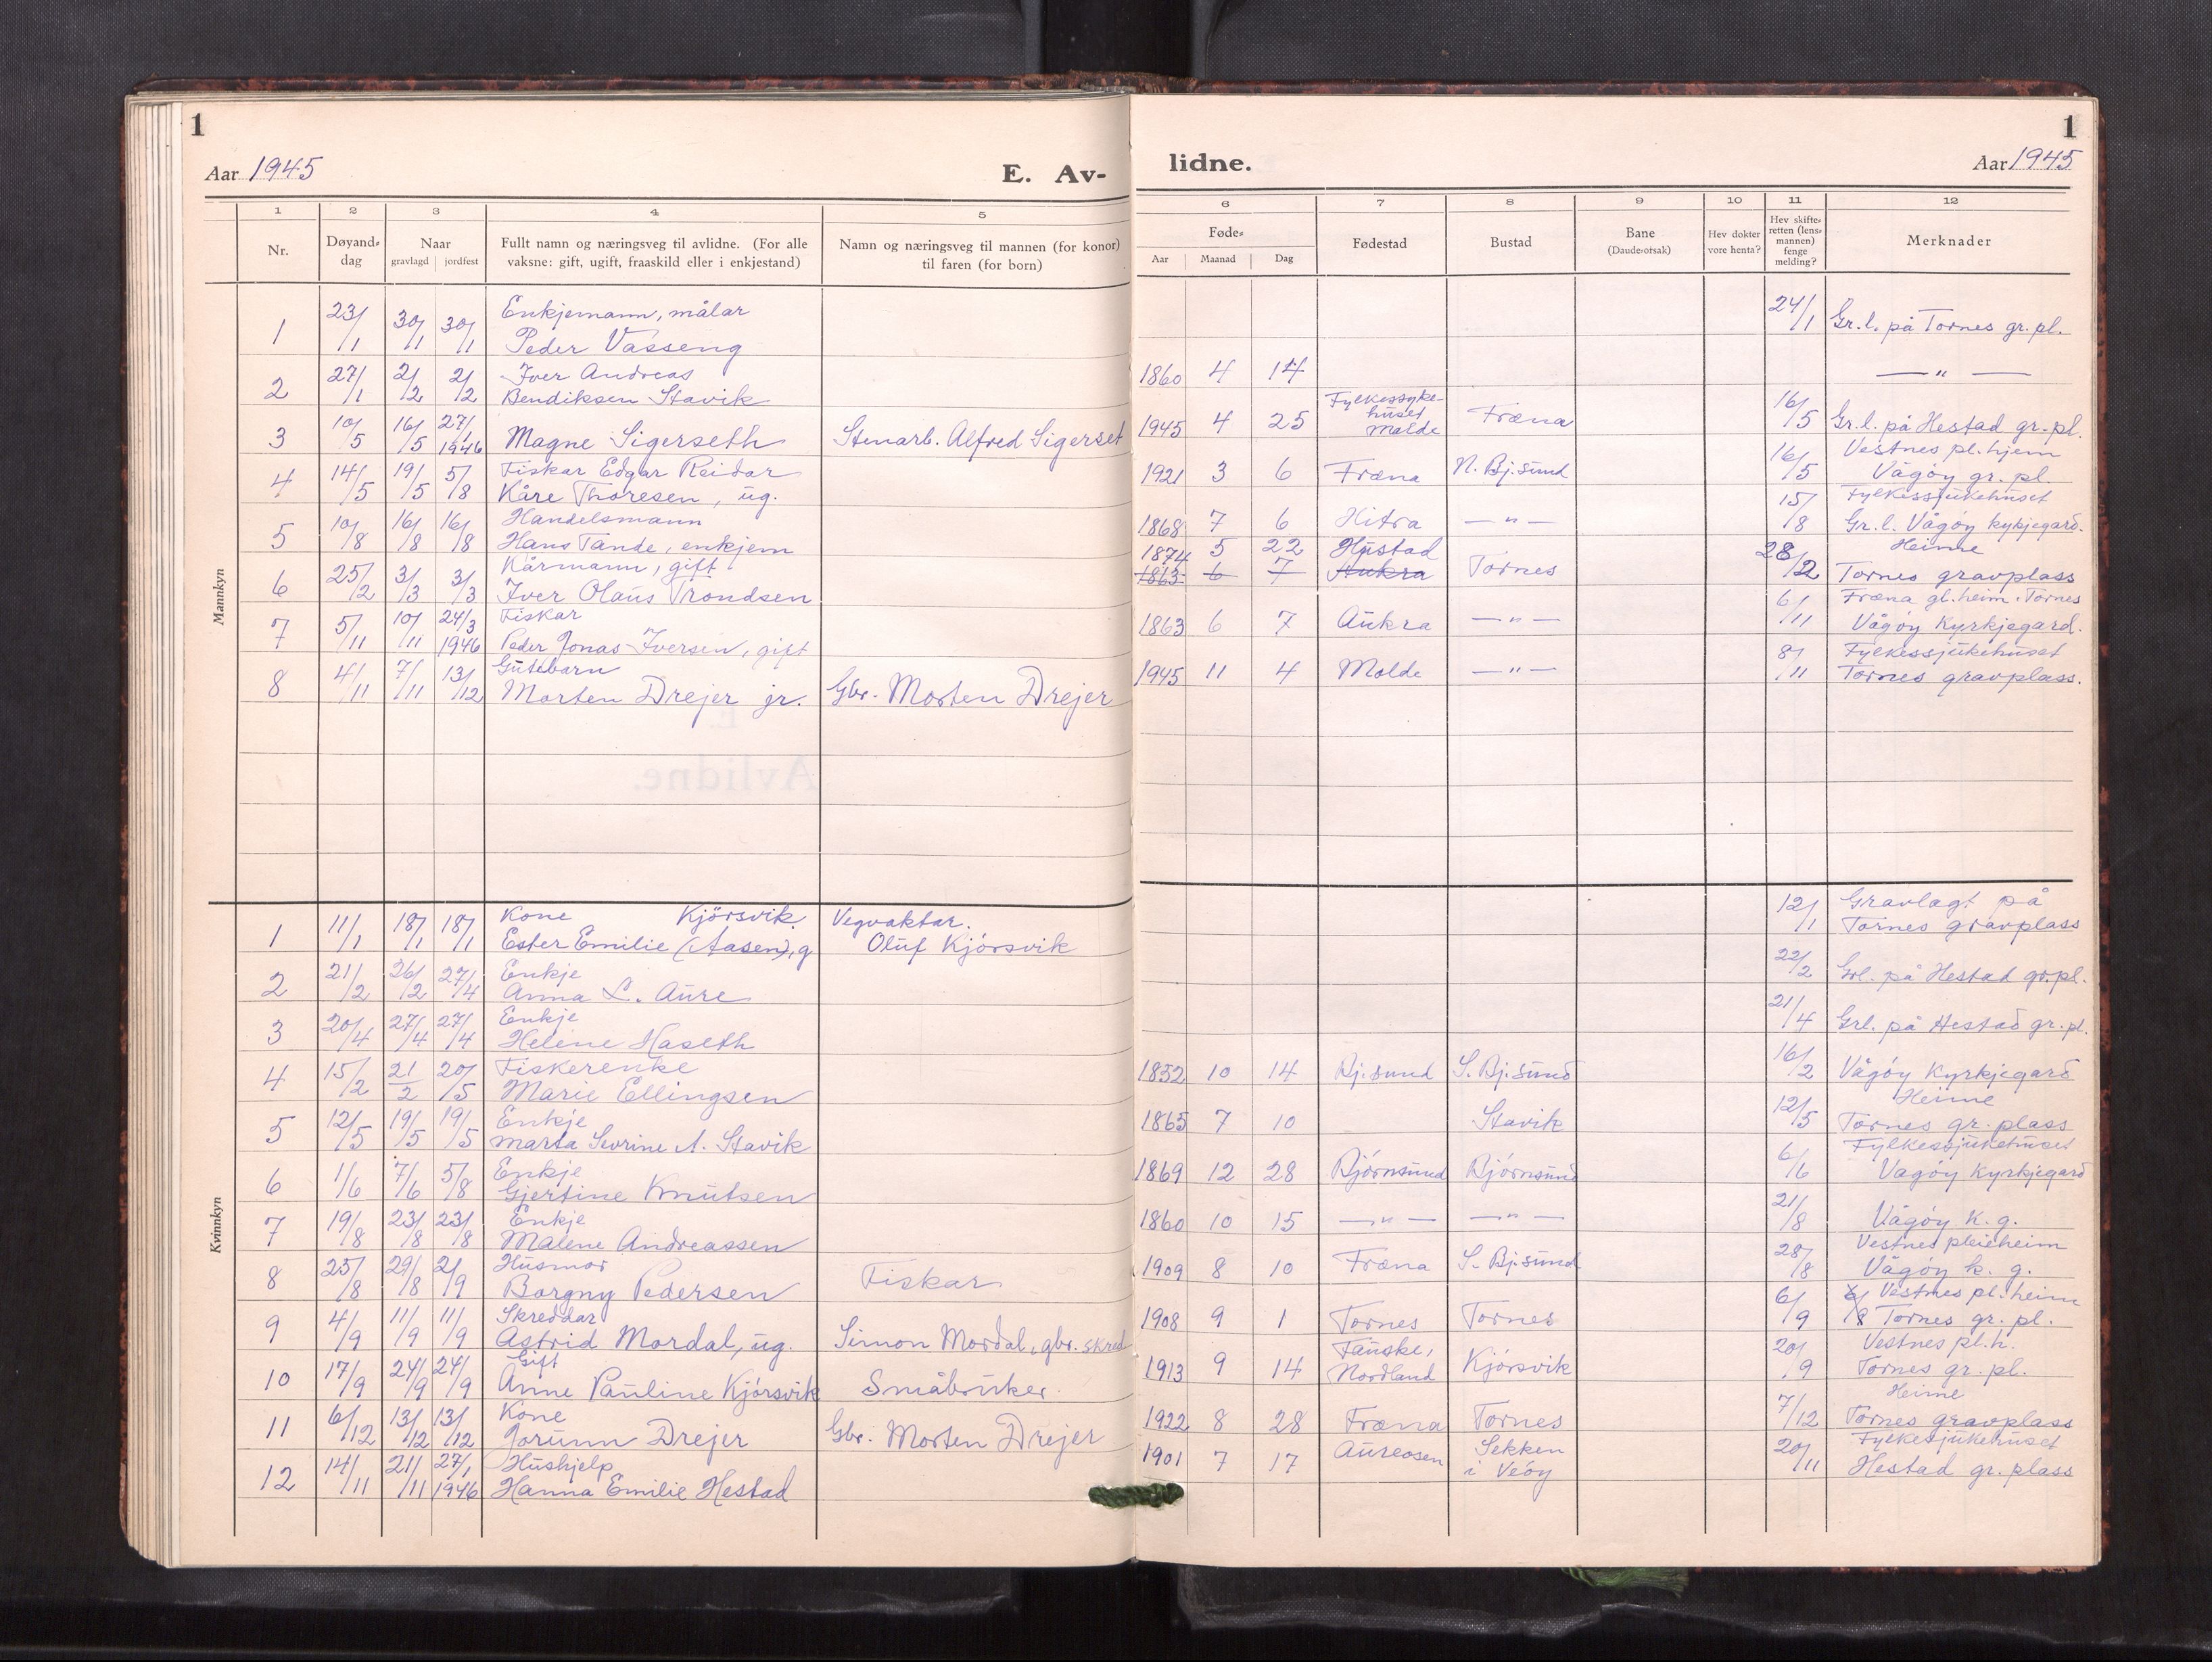 1
1
Aar 1945
E. Av-
lidne.
Aar 1945
1 2 3 4 5
6 7 8 9 10 11 12
Nr.
Døyand-
dag
Naar
gravlagd | jordfest
Fullt namn og næringsveg til avlidne. (For alle
vaksne: gift, ugift, fraaskild eller i enkjestand)
Namn og næringsveg til mannen (for konor)
til faren (for born)
Føde-
Aar | Maanad | Dag
Fødestad
Bustad
Bane
(Daude-orsak)
Hev dokter
vore henta?
Hev skifte-
retten (lens-
mannen)
fenge
melding?
Merknader
Mannkyn
1 23/1 30/1 30/1 Enkjemann, målar
Peder Vasseng
24/1 Gr. l. på Tornes gr. pl.
2 27/1 2/2 2/2 Iver Andreas
Bendiksen Stavik
1860 4 14 — " —
3 10/5 16/5 27/1 1946 Magne Sigerseth Stenarb. Alfred Sigerset
1945 4 25 Fylkessyke-
huset
Molde Fræna 16/5 Gr. l. på Hestad gr. pl.
4 14/5 19/5 5/8 Fiskar Edgar Reidar
Kåre Thoresen, ug.
1921 3 6 Fræna N. Bj.sund 16/5 Vestnes pl.hjem
Vågøy gr. pl.
5 10/8 16/8 16/8 Handelsmann
Hans Tande, enkjem
1868 7 6 Hitra — " — 15/8 Fylkessjukehuset
Gr. l. Vågøy kykjegard.
6 25/2 3/3 3/3 Kårmann, gift
Iver Olaus Trondsen
1874 5 22 Hustad
1863 6 7 Aukra Tornes 28/2 Heime
Tornes gravplass
7 5/11 10/11 24/3 1946 Fiskar
Peder Jonas Iversen, gift
1863 6 7 Aukra — " — 6/11 Fræna gl.heim. Tornes
Vågøy Kyrkjegard.
8 4/11 7/11 13/12 Gutebarn
Morten Drejer jr. Gbr. Morten Drejer
1945 11 4 Molde — " — 8/11 Fylkessjukehuset
Tornes gravplass.
Kvinnkyn
1 11/1 18/1 18/1 Kone Kjörsvik.
Ester Emilie (Aasen), g Vegvaktar.
Oluf Kjórsvik
12/1 Gravlagt på
Tornes gravplass
2 21/2 26/2 27/4 Enkje
Anna L. Aure
22/2 Grl. på Hestad gr.pl.
3 20/4 27/4 27/4 Enkje
Helene Haseth
21/4 Grl. på Hestad gr. pl.
4 15/2 21/2 20/5 Fiskerenke
Marie Ellingsen
1852 10 14 Bj.sund S. Bj.sund 16/2 Vågóy Kyrkjegard
5 12/5 19/5 19/5 Enkje
Marta Sevrine A. Stavik
1865 7 10 Stavik 12/5 Heime
Tornes gr. plass
6 1/6 7/6 5/8 Enkje
Gjertine Knutsen
1869 12 28 Bjórnsund Bjórnsund 6/6 Fylkessjukehuset
Vagóy Kyrkjegard
7 19/8 23/8 23/8 Enkje
Malene Andreassen
1860 10 15 — " — — " — 21/8 Vågóy K. g.
8 25/8 29/8 2/9 Husmor
Borgny Pedersen Fiskar
1909 8 10 Fræna S. Bj.sund 28/8 Vestnes pleieheim
Vågóy k. g.
9 4/9 11/9 11/9 Skreddar
Astrid Mordal, ug. Simon Mordal, gbr. skred
1908 9 1 Tornes Tornes 6/9 Vestnes pl.heim
Tornes gr. pl.
10 17/9 24/9 24/9 Gift
Anne Pauline Kjórsvik Småbruker.
1913 9 14 Fauske,
Nordland Kjórsvik 20/9 Vestnes pl.h.
Tornes gr. pl.
11 6/12 13/12 13/12 Kone
Jorunn Drejer Gbr. Morten Drejer
1922 8 28 Fræna Tornes 7/12 Heime
Tornes gravplass
12 14/11 21/11 27/1 1946 Hushjelp
Hanna Emilie Hestad
1901 7 17 Aureosen Sekken
i Veóy 20/11 Fylkesjukehuset
Hestad gr. plass